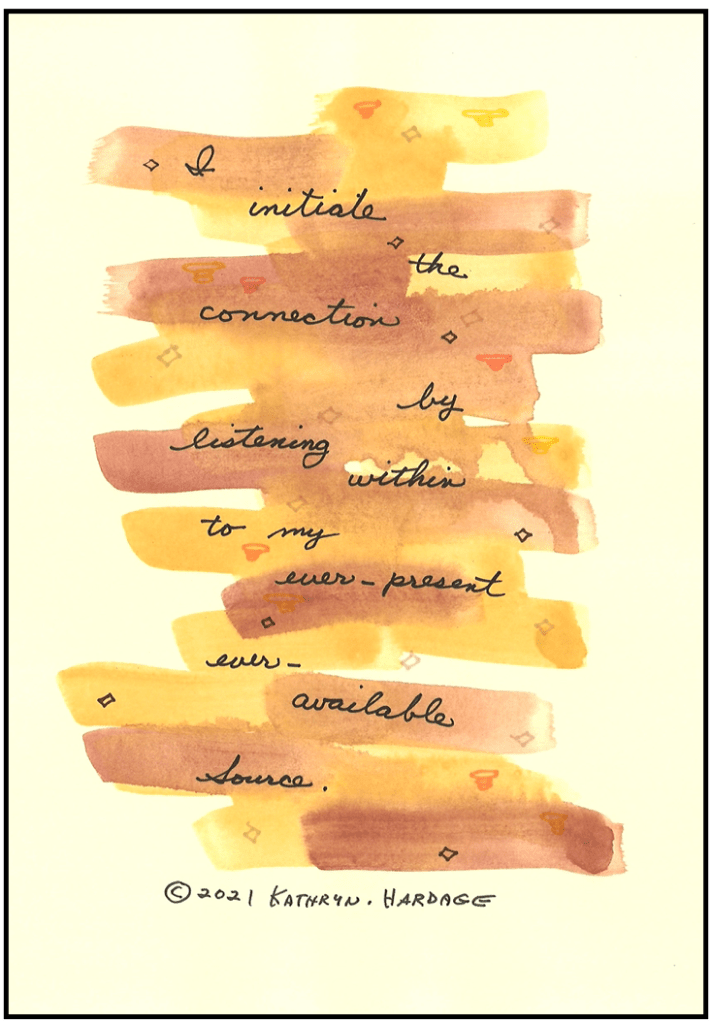 I
initiate
the
connection
by
listening
within
to my
ever-present
ever-
available
Source.
© 2021 KATHRYN. HARDAGE